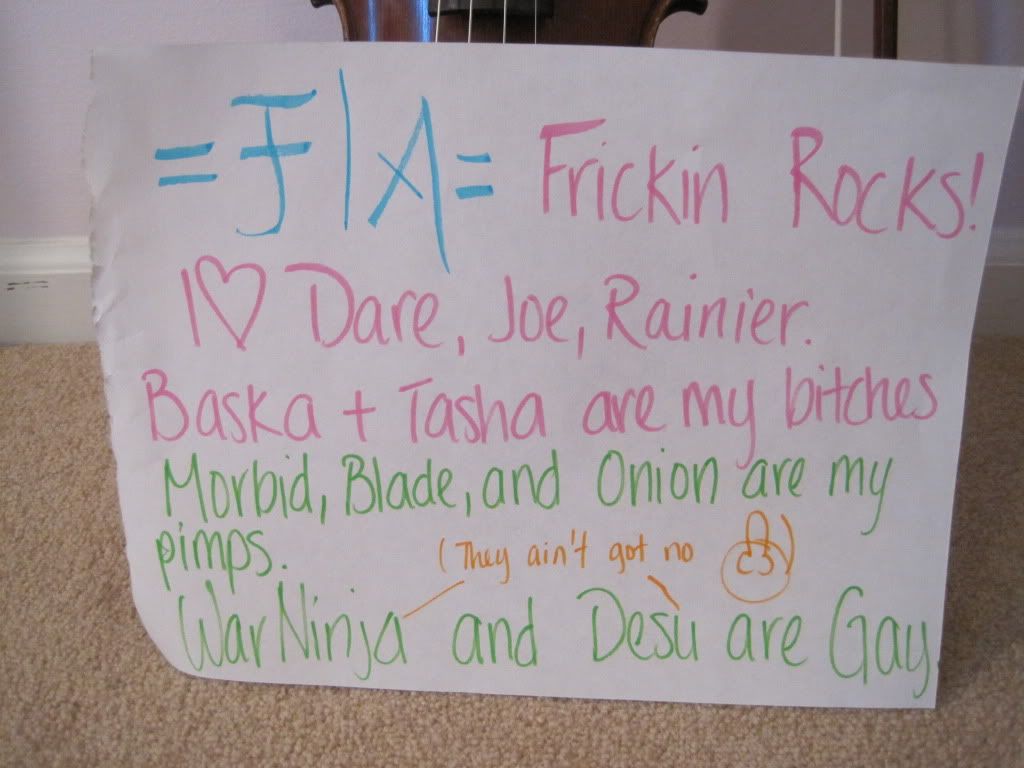 =F|A= Frickin Rocks!
I ♡ Dare, Joe, Rainier.
Baska + Tasha are my bitches
Morbid, Blade, and Onion are my
pimps.
(They ain't got no )
WarNinja and Desu are Gay.